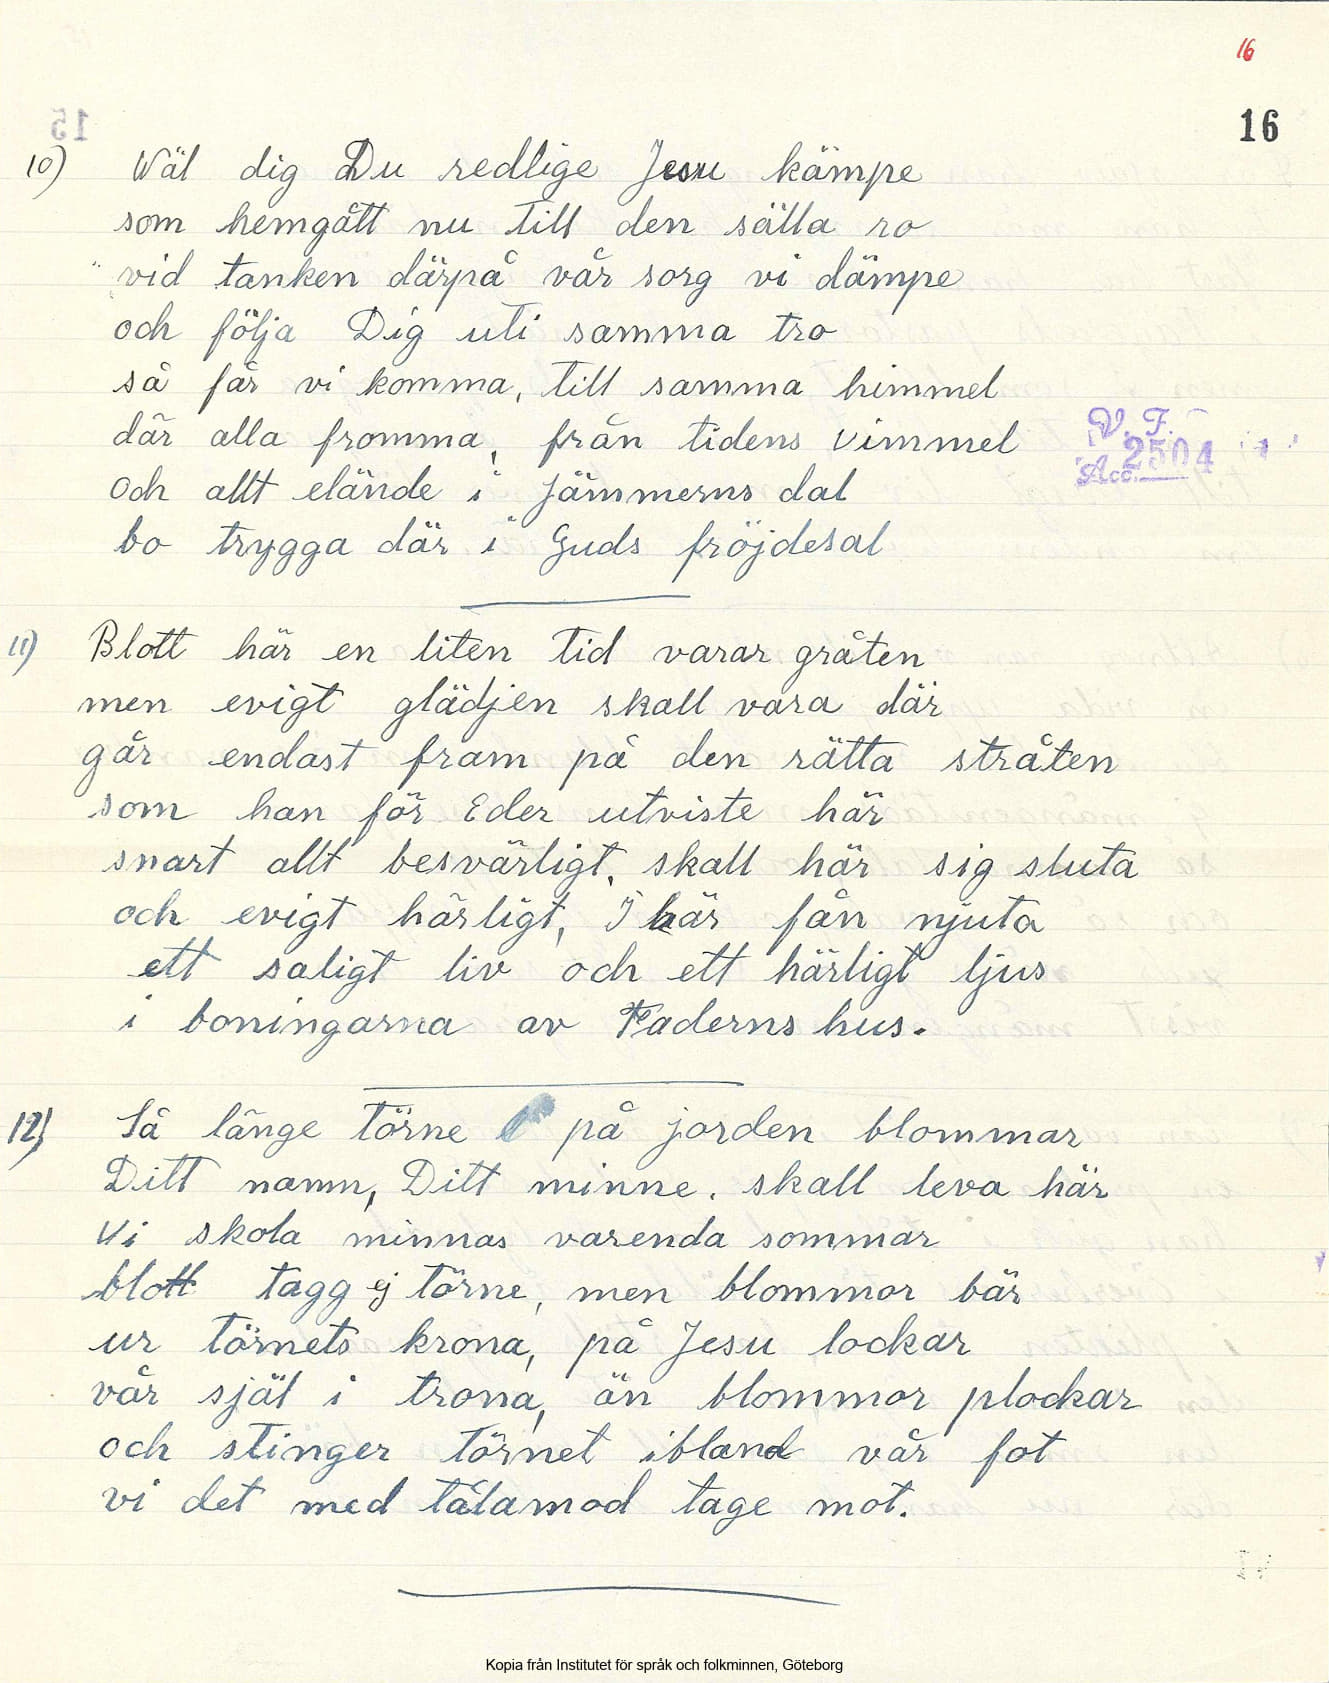 16
16
10) Wäl dig Du redlige Jesu kämpe
som hemgått nu till den sälla ro
vid tanken därpå vår sorg vi dämpe
och följa Dig uti samma tro
så får vi komma, till samma himmel
där alla fromma, från tidens vimmel
och allt elände i jämmerns dal
bo trygga där i Guds fröjdesal
V. F.
Acc. 2504
11) Blott här en liten tid varar gråten
men evigt glädjen skall vara där
går endast fram på den rätta stråten
som han för Eder utviste här
snart allt besvärligt, skall här sig sluta
och evigt härligt, I här fån njuta
ett saligt liv och ett härligt ljus
i boningarna av Faderns hus.
12) Så länge törne på jorden blommar
Ditt namn, Ditt minne, skall leva här
Vi skola minnas varenda sommar
blott tagg ej törne, men blommor bär
ur törnets krona, på Jesu lockar
vår själ i trona, än blommor plockar
och stinger törnet ibland vår fot
vi det med tålamod tage mot.
Kopia från Institutet för språk och folkminnen, Göteborg